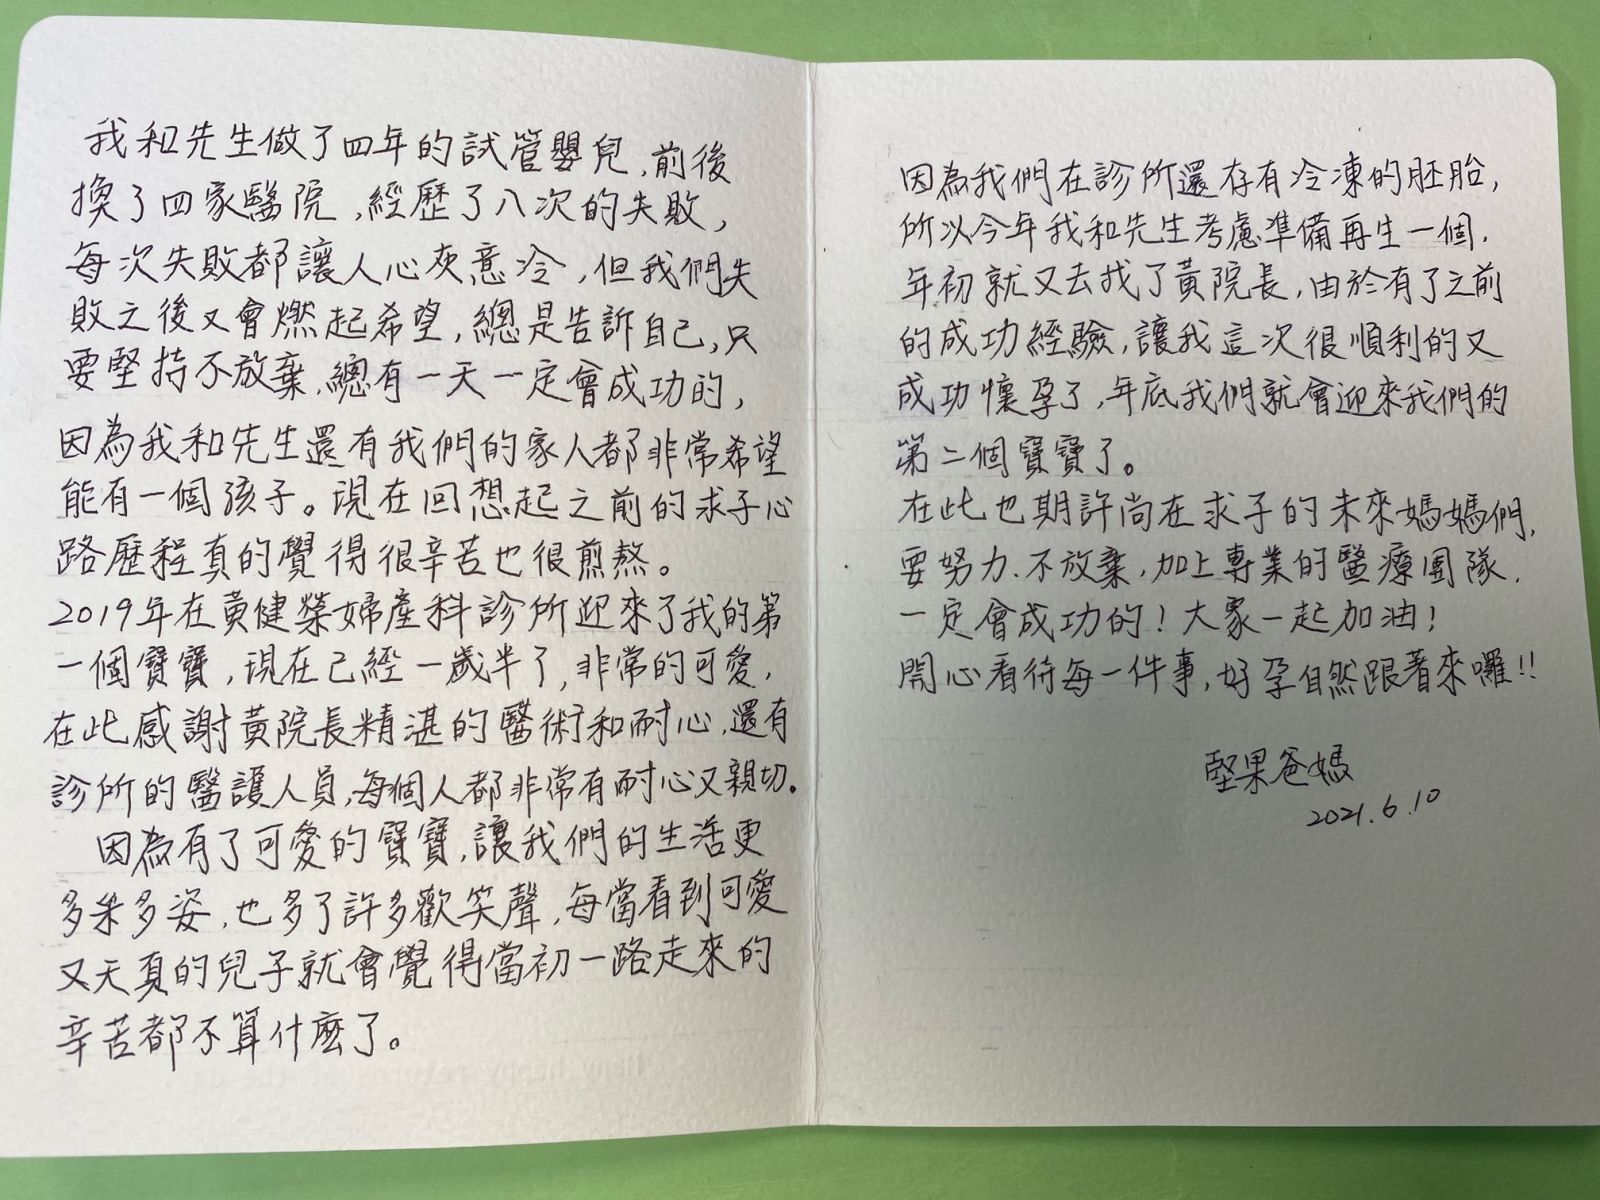 我和先生做了四年的試管嬰兒,前後
換了四家醫院,經歷了八次的失敗,
每次失敗都讓人心灰意冷,但我們失
敗之後又會燃起希望,總是告訴自己,只
要堅持不放棄,總有一天一定會成功的,
因為我和先生還有我們的家人都非常希望
能有一個孩子。現在回想起之前的求子心
路歷程真的覺得很辛苦也很煎熬。
2019年在黃健榮婦產科診所迎來了我的第
一個寶寶,現在已經一歲半了,非常的可愛,
在此感謝黃院長精湛的醫術和耐心,還有
診所的醫護人員,每個人都非常有耐心又親切。
因為有了可愛的寶寶,讓我們的生活更
多采多姿,也多了許多歡笑聲,每當看到可愛
又天真的兒子就會覺得當初一路走來的
辛苦都不算什麼了。
因為我們在診所還存有冷凍的胚胎,
所以今年我和先生考慮準備再生一個,
年初就又去找了黃院長,由於有了之前
的成功經驗,讓我這次很順利的又
成功懷孕了,年底我們就會迎來我們的
第二個寶寶了。
在此也期許尚在求子的未來媽媽們,
要努力、不放棄,加上專業的醫療團隊,
一定會成功的!大家一起加油!
開心看待每一件事,好孕自然跟著來囉!!
堅果爸媽
2021.6.10